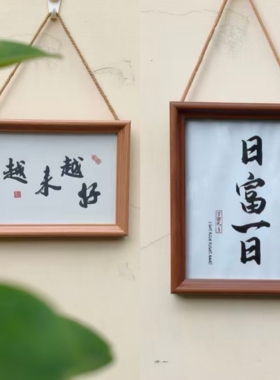 越来越好
日富一日